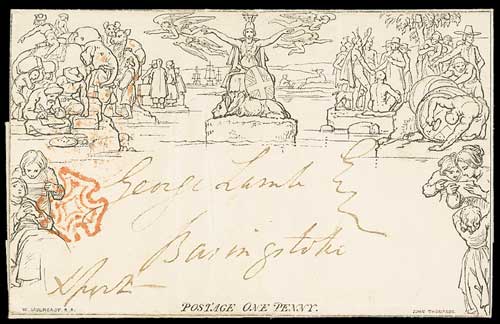 George Lamb Esq
Basingstoke
POSTAGE ONE PENNY.
W. MULREADY. R.A.
JOHN THOMPSON